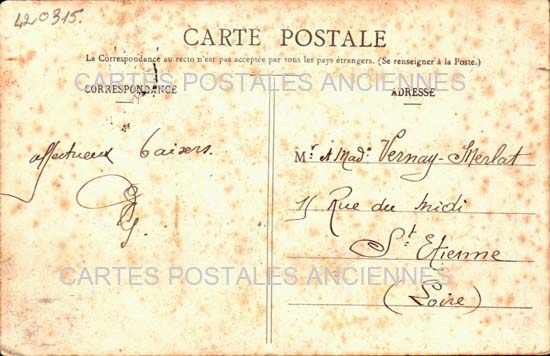 420315.
CARTE POSTALE
La Correspondance au recto n'est pas acceptée par tous les pays étrangers. (Se renseigner à la Poste.)
CARTES POSTALES ANCIENNES
CORRESPONDANCE
ADRESSE
affectueux baisers.
Mr. et Made. Vernay-Merlat
11 Rue du Midi
St. Etienne
(Loire)
CARTES POSTALES ANCIENNES